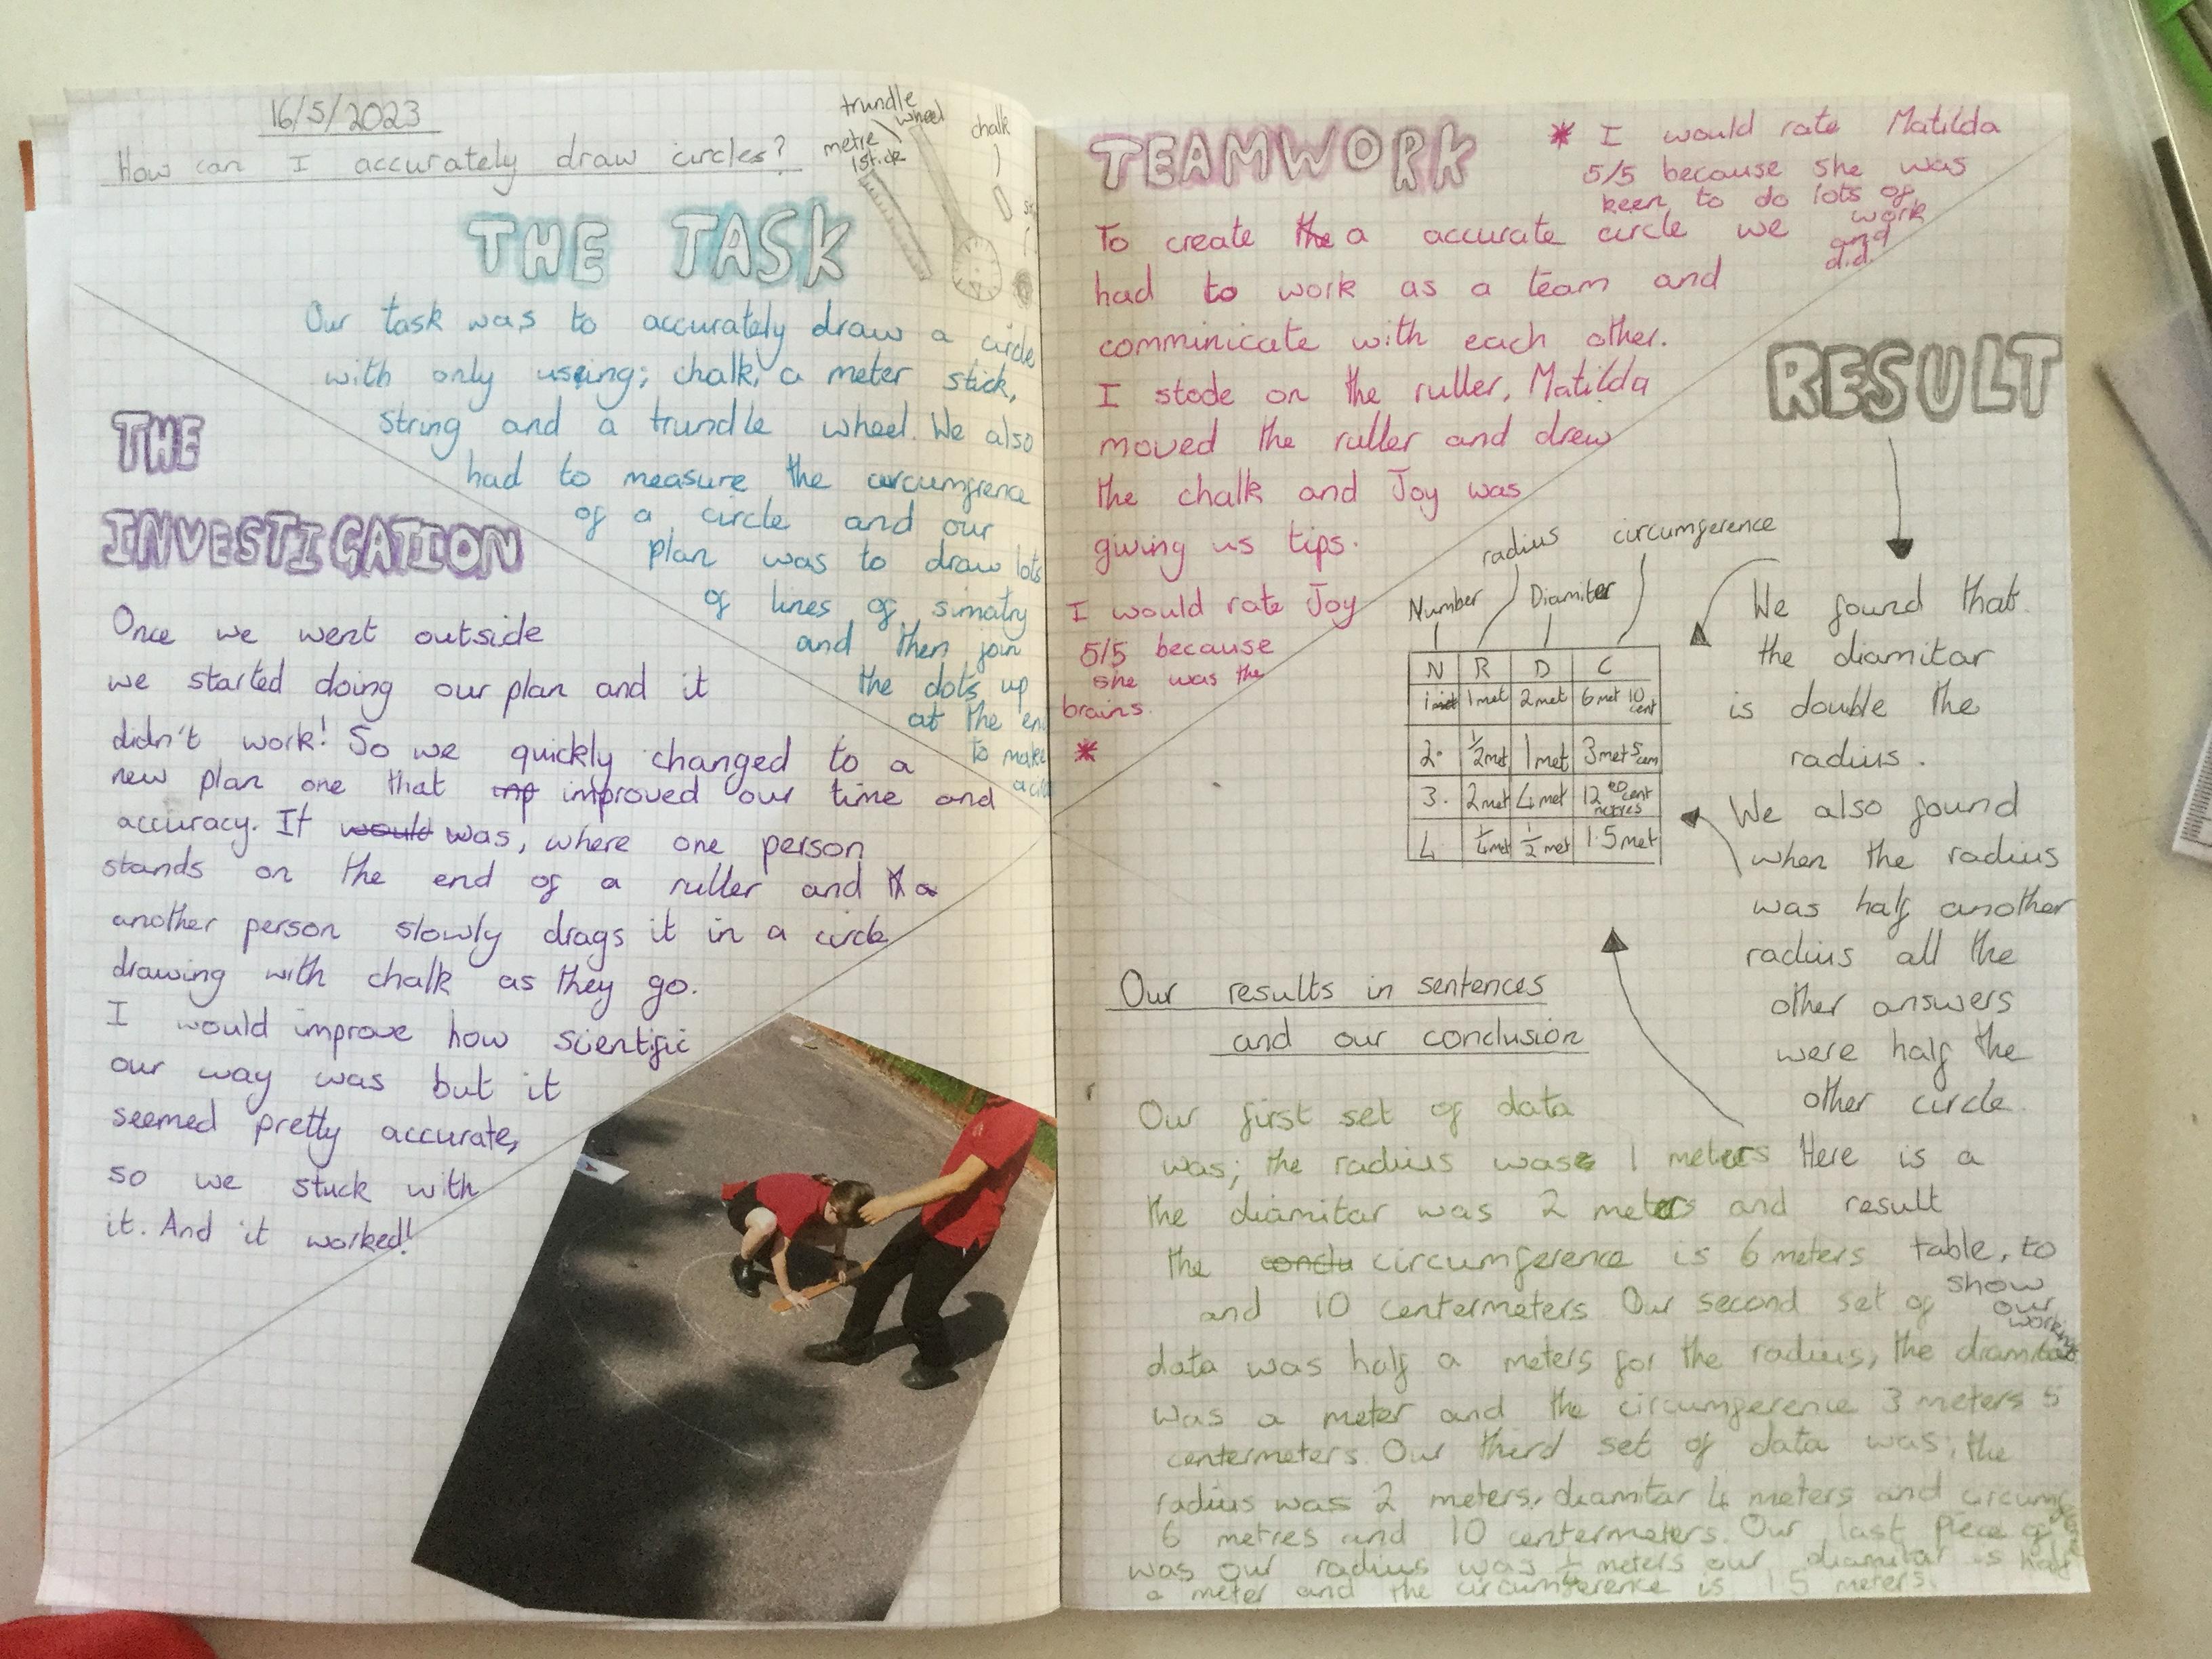 16/5/2023
How can I accurately draw circles?
trundle
wheel
metre
stick
chalk
THE TASK
Our task was to accurately draw a circle
with only useing; chalk, a meter stick,
string and a trundle wheel. We also
had to measure the circumfrence
of a circle and our
plan was to draw lots
of lines of simatry
and then join
the dots up
at the end
to make
THE
INVESTIGATION
Once we went outside
we started doing our plan and it
didn't work! So we quickly changed to a
new plan one that imp improved our time and
accuracy. It would was, where one person
stands on the end of a ruller and a
another person slowly drags it in a circle
drawing with chalk as they go.
I would improve how scientific
our way was but it
seemed pretty accurate,
so we stuck with
it. And it worked!
TEAMWORK
To create the a accurate circle we
had to work as a team and
comminicate with each other.
I stode on the ruller, Matilda
moved the ruller and drew
the chalk and Joy was
giving us tips.
I would rate Joy
5/5 because
she was the
brains.
*
* I would rate Matilda
5/5 because she was
keen to do lots of
work
and
did.
RESULT
We found that
the diamitar
is double the
radius.
We also found
when the radius
was half another
radius all the
other answers
were half the
other circle.
Here is a
result
table, to
show
our
working
Number radius Diamiter circumference
N R D C
1 met 1met 2met 6met 10 cent
2. ½met 1met 3met 5cem
3. 2met 4met 12 metres 20 cent
4 ¼met ½met 1.5met
Our results in sentences
and our conclusion
Our first set of data
was; the radius was 1 meters
the diamitar was 2 meters and
the conclu circumference is 6 meters
and 10 centermeters. Our second set of
data was half a meters for the radius, the diamitar
was a meter and the circumference 3 meters 5
centermeters. Our third set of data was; the
radius was 2 meters, diamitar 4 meters and
6 metres and 10 centermeters. Our last piece of
was our radius was ¼ meters our diamitar is half
a meter and the circumference is 1.5 meters.